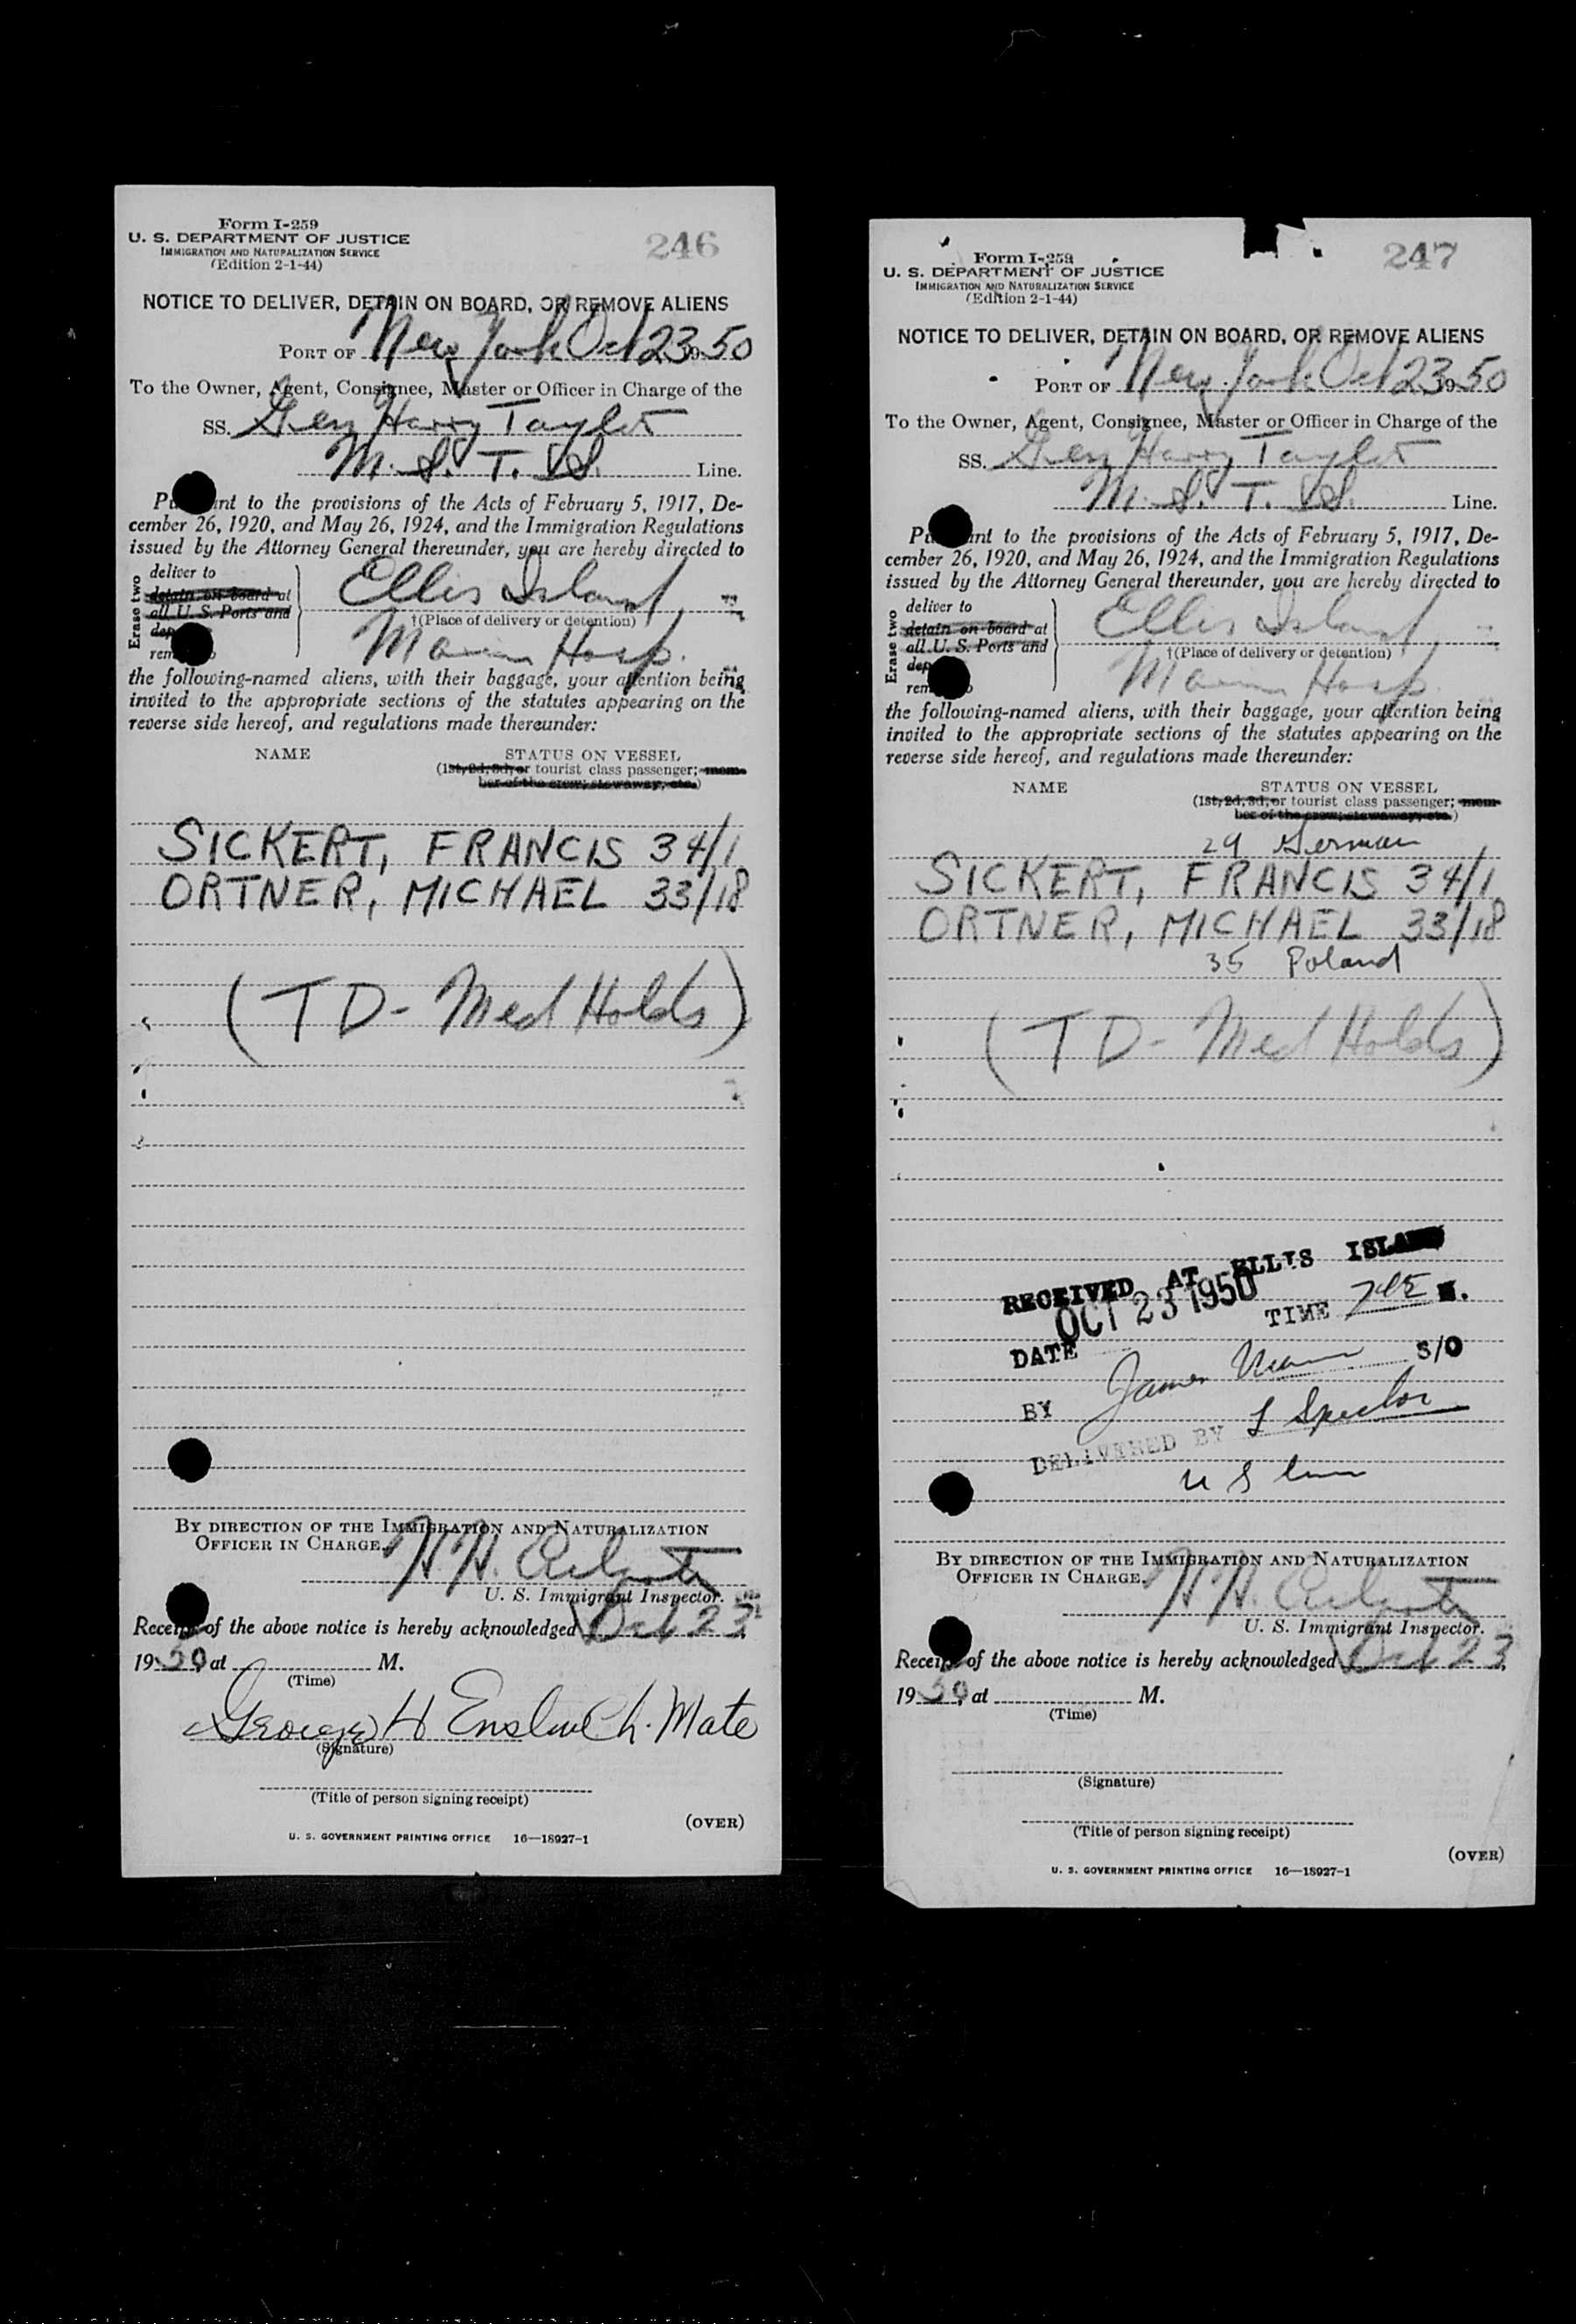 Form I-259
U. S. DEPARTMENT OF JUSTICE
IMMIGRATION AND NATURALIZATION SERVICE
(Edition 2-1-44)
246
NOTICE TO DELIVER, DETAIN ON BOARD, OR REMOVE ALIENS
PORT OF New York Oct 23 1950
To the Owner, Agent, Consignee, Master or Officer in Charge of the
SS. Gen Harry Taylor
M. S. T. S. Line.
Pu nt to the provisions of the Acts of February 5, 1917, De-
cember 26, 1920, and May 26, 1924, and the Immigration Regulations
issued by the Attorney General thereunder, you are hereby directed to
Erase two
deliver to
detain on board at
all U. S. Ports and
dep
rem
Ellis Island
†(Place of delivery or detention)
Marine Hosp.
the following-named aliens, with their baggage, your attention being
invited to the appropriate sections of the statutes appearing on the
reverse side hereof, and regulations made thereunder:
NAME STATUS ON VESSEL
(1st, 2d, 3d, or tourist class passenger; mem-
ber of the crew; stowaway, etc.)
SICKERT, FRANCIS 34/1
ORTNER, MICHAEL 33/18
(TD- Med Holds)
BY DIRECTION OF THE IMMIGRATION AND NATURALIZATION
OFFICER IN CHARGE.
H. H.
U. S. Immigrant Inspector.
Receipt of the above notice is hereby acknowledged Oct 23,
1950, at M.
(Time)
George H Enslow Ch. Mate
(Signature)
(Title of person signing receipt)
(OVER)
U. S. GOVERNMENT PRINTING OFFICE 16—18927-1
Form I-259
U. S. DEPARTMENT OF JUSTICE
IMMIGRATION AND NATURALIZATION SERVICE
(Edition 2-1-44)
247
NOTICE TO DELIVER, DETAIN ON BOARD, OR REMOVE ALIENS
PORT OF New York Oct 23 1950
To the Owner, Agent, Consignee, Master or Officer in Charge of the
SS. Gen Harry Taylor
M. S. T. S. Line.
Pu nt to the provisions of the Acts of February 5, 1917, De-
cember 26, 1920, and May 26, 1924, and the Immigration Regulations
issued by the Attorney General thereunder, you are hereby directed to
Erase two
deliver to
detain on board at
all U. S. Ports and
dep
rem
Ellis Island
†(Place of delivery or detention)
Marine Hosp.
the following-named aliens, with their baggage, your attention being
invited to the appropriate sections of the statutes appearing on the
reverse side hereof, and regulations made thereunder:
NAME STATUS ON VESSEL
(1st, 2d, 3d, or tourist class passenger; mem-
ber of the crew; stowaway, etc.)
29 German
SICKERT, FRANCIS 34/1
ORTNER, MICHAEL 33/18
35 Poland
(TD- Med Holds)
RECEIVED AT ELLIS ISLAND
DATE OCT 23 1950 TIME M.
BY James S/O
DELIVERED BY L Spector
U S
BY DIRECTION OF THE IMMIGRATION AND NATURALIZATION
OFFICER IN CHARGE.
H. H.
U. S. Immigrant Inspector.
Receipt of the above notice is hereby acknowledged Oct 23,
1950, at M.
(Time)
(Signature)
(Title of person signing receipt)
(OVER)
U. S. GOVERNMENT PRINTING OFFICE 16—18927-1